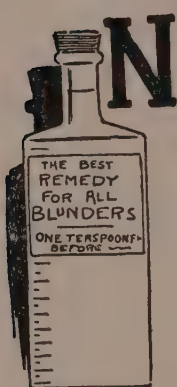 N
THE BEST
REMEDY
FOR ALL
BLUNDERS
ONE TEASPOONF
BEFORE